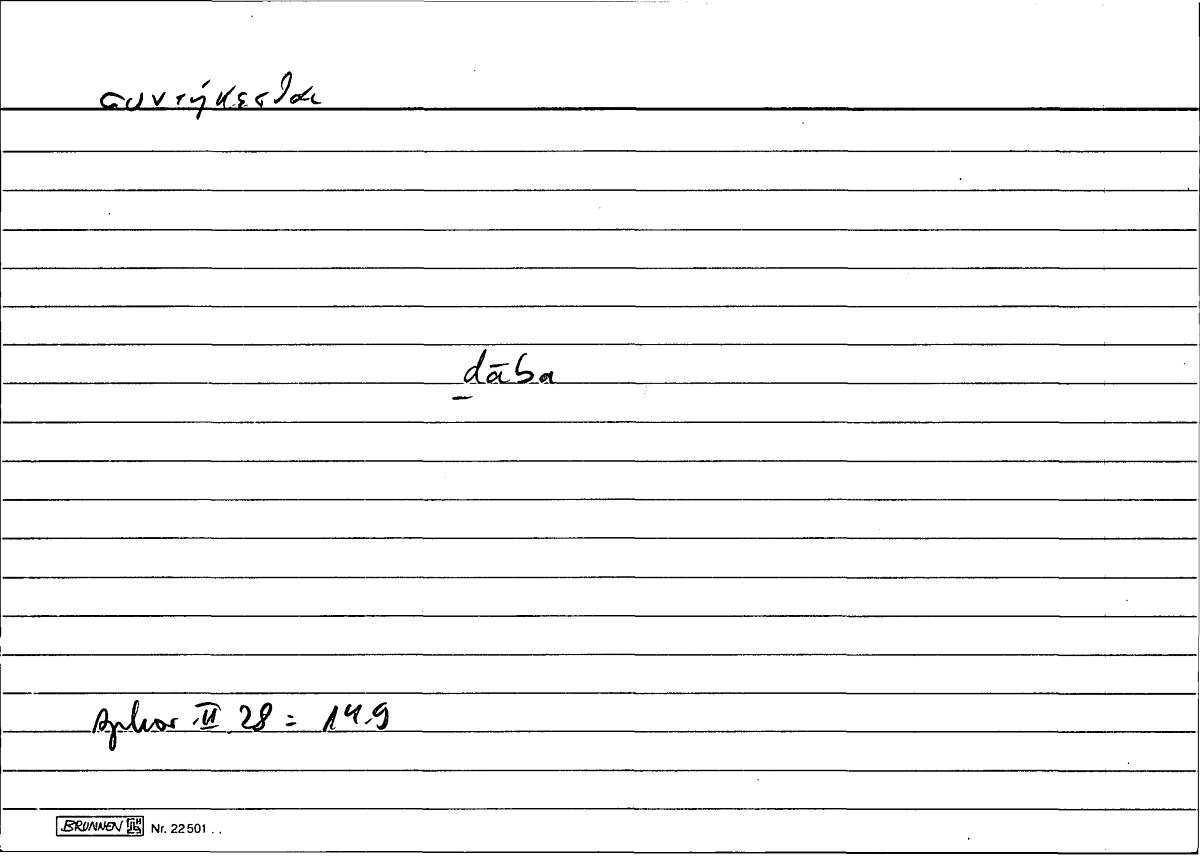 συντήκεσθαι
ḏāba
Aphor. II 28 = 14.9
BRUNNEN Nr. 22501 . .